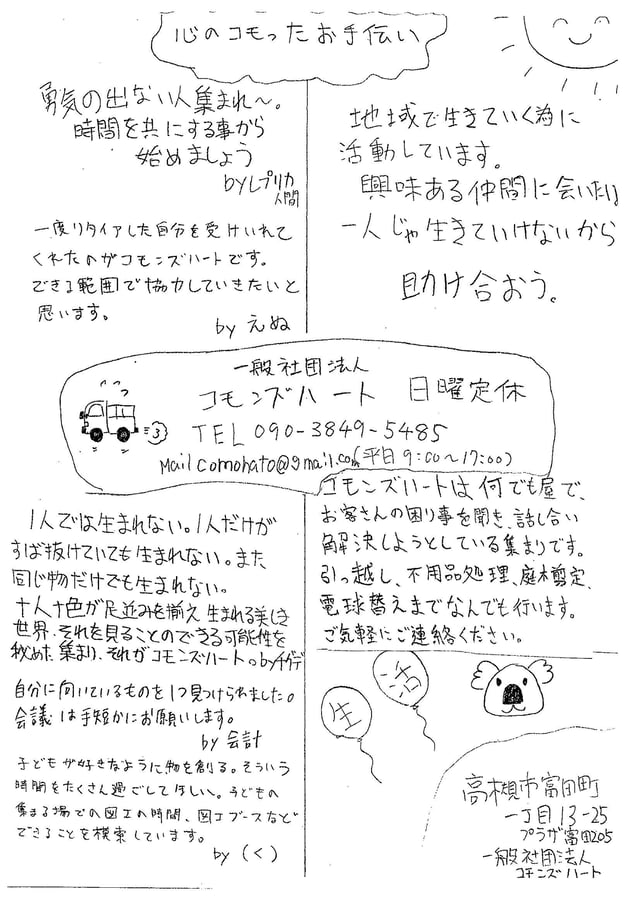 心のコモったお手伝い
勇気の出ない人集まれ〜。
時間を共にする事から
始めましょう
byレプリカ
人間
一度リタイアした自分を受けいれて
くれたのがコモンズハートです。
できる範囲で協力していきたいと
思います。
by えぬ
地域で生きていく為に
活動しています。
興味ある仲間に会いたい
一人じゃ生きていけないから
助け合おう。
一般社団法人
コモンズハート 日曜定休
TEL 090-3849-5485
Mail comohato@gmail.com(平日9:00〜17:00)
1人では生まれない。1人だけが
ずば抜けていても生まれない。また
同じ物だけでも生まれない。
十人十色が足並みを揃え生まれる美しき
世界。それを見ることのできる可能性を
秘めた集まり、それがコモンズハート。by
自分に向いているものを1つ見つけられました。
会議は手短かにお願いします。
by 会計
子どもが好きなように物を創る。そういう
時間をたくさん過ごしてほしい。子どもの
集まる場での図工の時間、図工ブースなど
できることを模索しています。
by (く)
コモンズハートは何でも屋で、
お客さんの困り事を聞き、話し合い
解決しようとしている集まりです。
引っ越し、不用品処理、庭木剪定、
電球替えまでなんでも行います。
ご気軽にご連絡ください。
生活
高槻市富田町
一丁目13-25
プラザ富田205
一般社団法人
コモンズハート